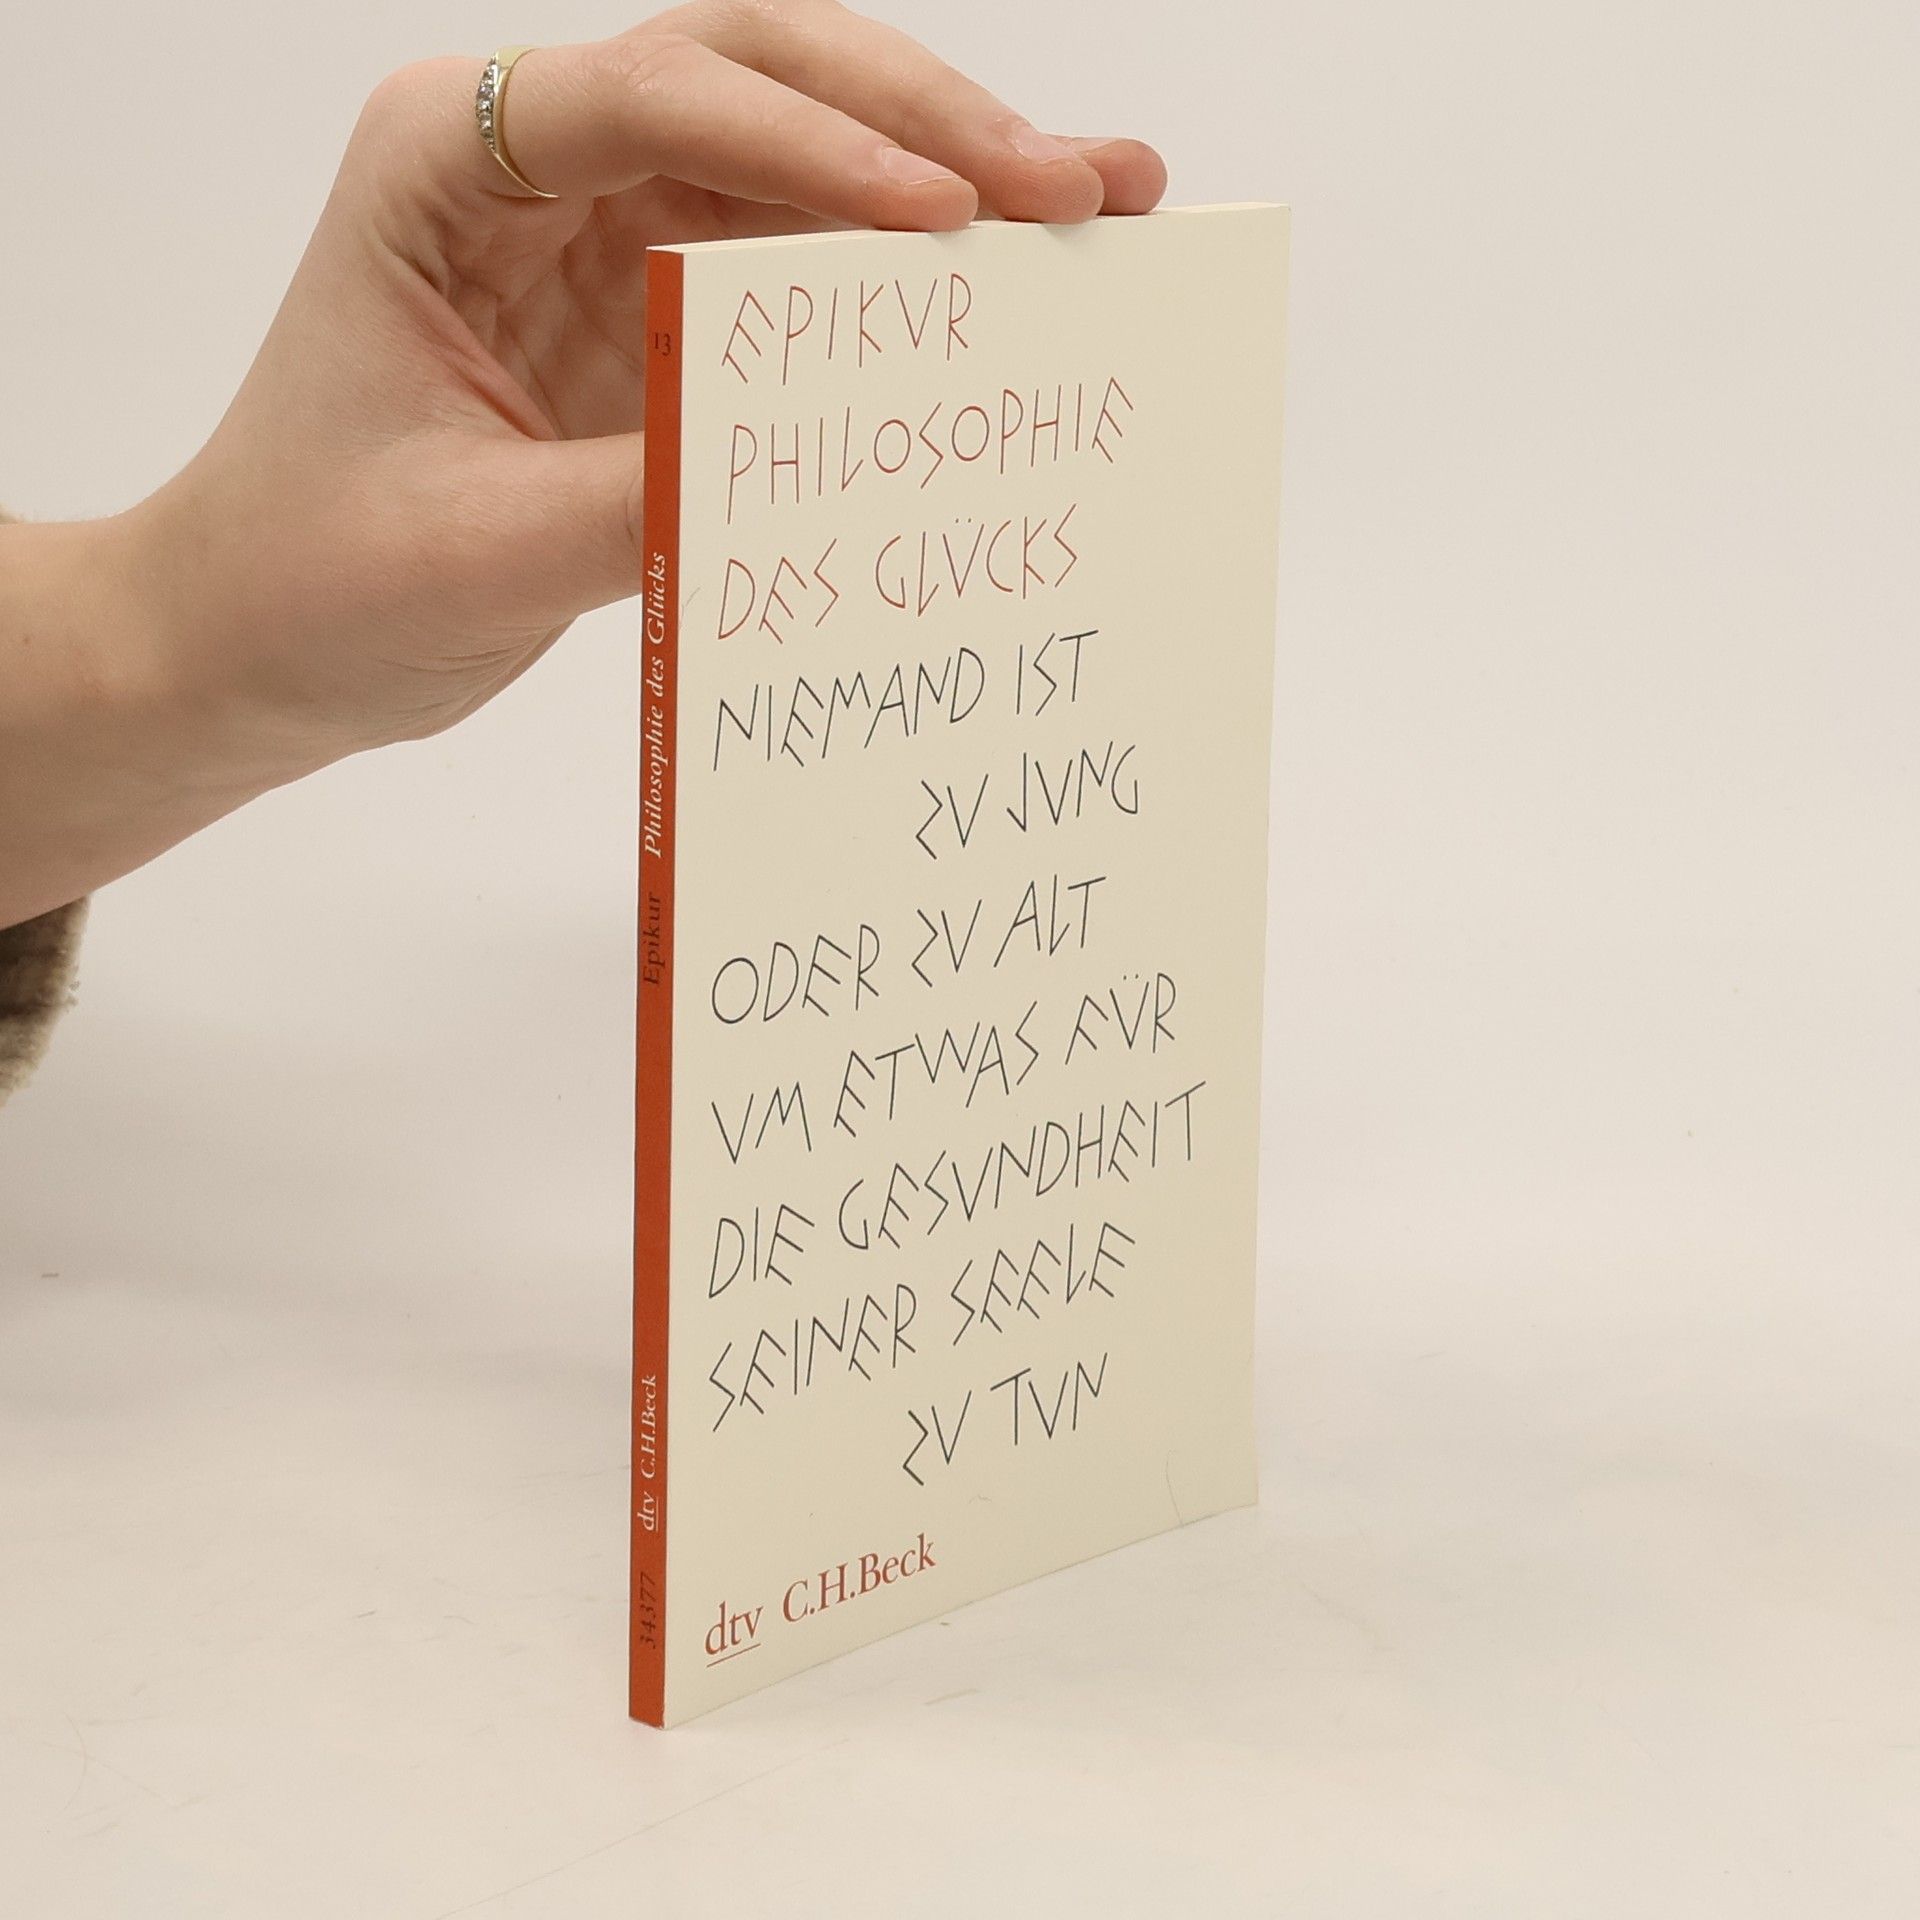 EPIKVR
PHILOSOPHIE
DES GLÜCKS
NIEMAND IST
ZV JVNG
ODER ZV ALT
VM ETWAS FÜR
DIE GESVNDHEIT
SEINER SEELE
ZV TVN
dtv C.H.Beck
13
Epikur Philosophie des Glücks
dtv C.H.Beck
34377